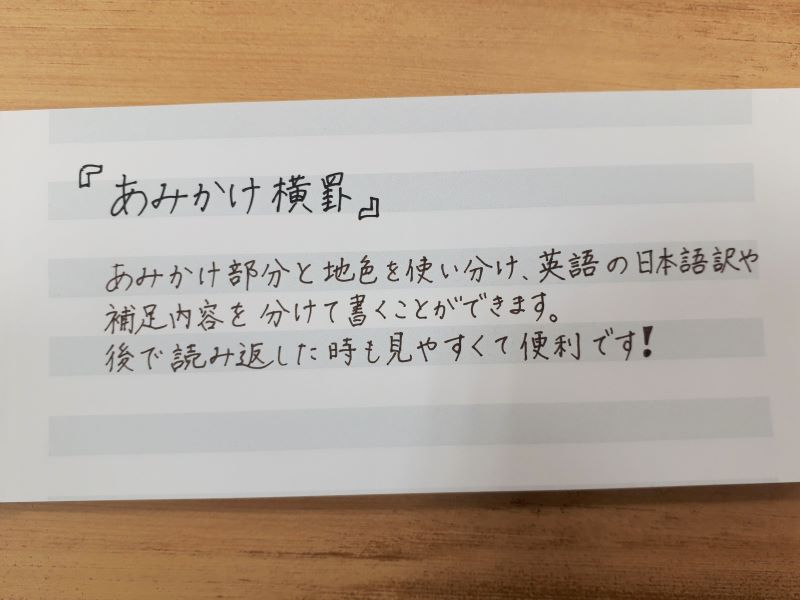 『あみかけ横罫』
あみかけ部分と地色を使い分け、英語の日本語訳や
補足内容を分けて書くことができます。
後で読み返した時も見やすくて便利です!